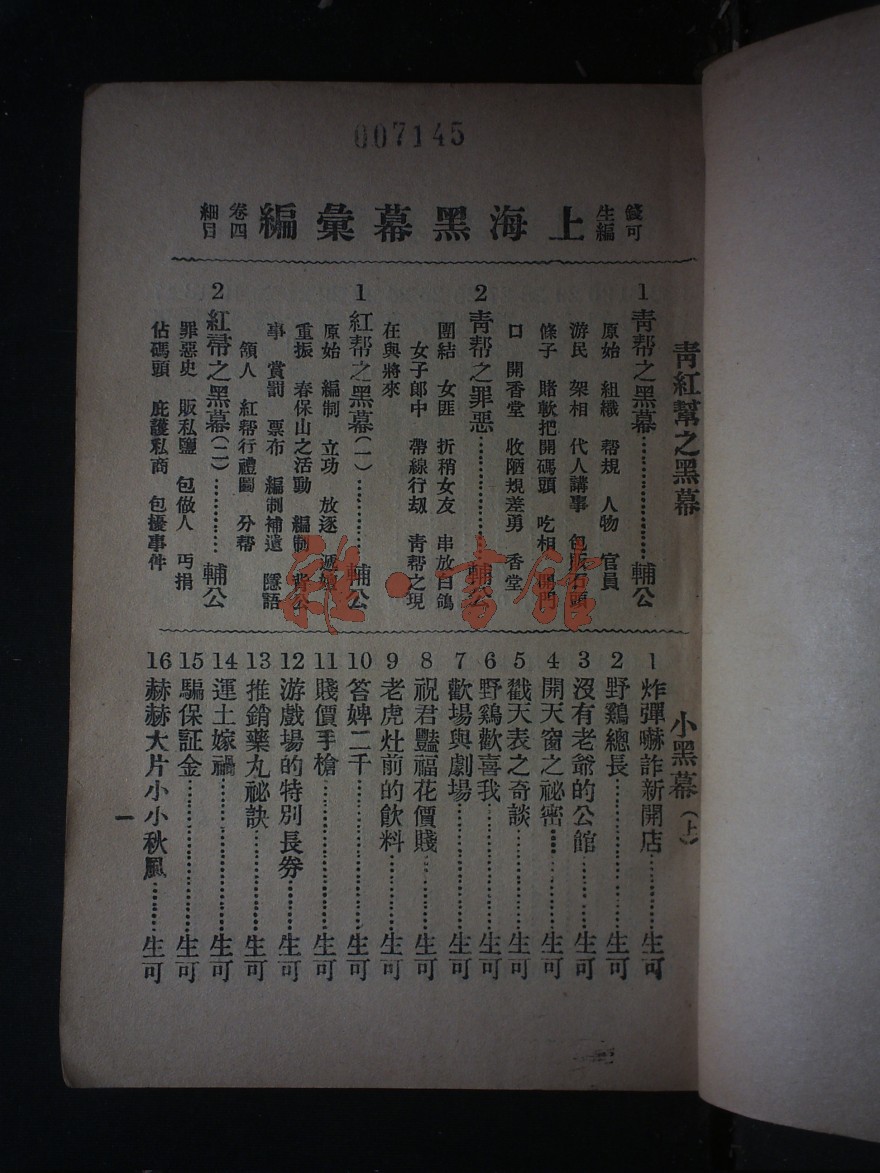 007145
錢可
生編
上海黑幕彙編
卷四
細目
青紅幫之黑幕
1 青帮之黑幕…………輔公
原始 組織 帮規 人物 官員
游民 架相 代人講事 包販石頭
條子 賭軟把開碼頭 吃相
口 開香堂 收陋規差勇 香堂
2 青帮之罪惡…………輔公
團結 女匪 折稍女友 串放白鴿
女子郎中 帶線行刼 青帮之現
在與將來
1 紅帮之黑幕(一)…………輔公
原始 編制 立功 放逐
重振 春保山之活動 編制
事 賞罰 票布 編制補遺 隱語
領人 紅帮行禮圖 分帮
2 紅帮之黑幕(二)…………輔公
罪惡史 販私鹽 包做人 丐捐
佔碼頭 庇護私商 包擾事件
小黑幕(上)
1 炸彈嚇詐新開店…………生可
2 野鷄總長…………生可
3 沒有老爺的公館…………生可
4 開天窗之祕密…………生可
5 戳天表之奇談…………生可
6 野鷄歡喜我…………生可
7 歡場與劇場…………生可
8 祝君豔福花價賤…………生可
9 老虎灶前的飲料…………生可
10 答婢二千…………生可
11 賤價手槍…………生可
12 游戲場的特別長劵…………生可
13 推銷藥丸祕訣…………生可
14 運土嫁禍…………生可
15 騙保証金…………生可
16 赫赫大片小小秋風…………生可
一
雜·書館